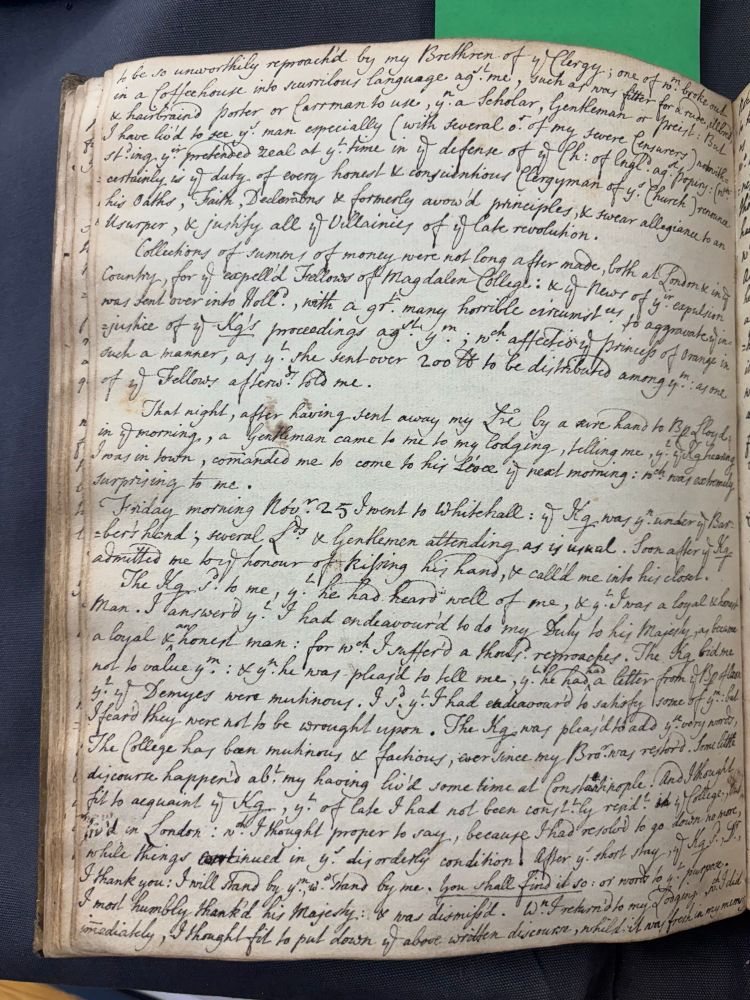 to be so unworthily reproach'd by my Brethren of yͤ Clergy; one of wᵐ broke out
in a Coffeehouse into scurrilous language agˢᵗ me, such as was fitter for a rude,
& hairbraind Porter or Carrman to use, yⁿ a Scholar, Gentleman or Preist: But
I have liv'd to see yᵗ man especially (with several oʳ of my severe Censurers) notwith=
stᵈing yⁱʳ pretended zeal at yᵗ time in yͤ defense of yͤ Ch: of Englᵈ agˢᵗ Popery: (wᶜʰ
=certainly is yͤ duty of every honest & conscientious Clergyman of yˢ Church) renounce
his Oaths, Faith, Declaratⁿs & formerly avow'd principles, & swear allegiance to an
Usurper, & justify all yͤ Villainies of yͤ late revolution.
Collections of summs of money were not long after made, both at London & in yͤ
Country, for yͤ expell'd Fellows of Magdalen College: & yͤ News of yⁱʳ expulsion
was sent over into Hollᵈ, with a grᵗ many horrible circumstᶜᵉˢ, to aggravate yͤ in=
=justice of yͤ Kg's proceedings agˢᵗ yᵐ; wᶜʰ affected yͤ Princess of Orange in
such a manner, as yᵗ she sent over 200 ℔ to be distributed among yᵐ: as one
of yͤ Fellows afterwᵈˢ told me.
That night, after having sent away my Lʳᵉ by a sure hand to Bp Lloyd
in yͤ morning, a Gentleman came to me to my lodging, telling me, yᵗ yͤ Kg hearing
I was in town, comanded me to come to his Levee yͤ next morning: wᶜʰ was extremely
surprising to me.
Friday morning Novʳ 25 I went to Whitehall: yͤ Kg was yⁿ under yͤ Bar=
=ber's hand; several Lᵈˢ & Gentlemen attending as is usual. Soon after yͤ Kg
admitted me to yͤ honour of kissing his hand, & call'd me into his closet.
The Kg sᵈ to me, yᵗ he had heard well of me, & yᵗ I was a loyal & honest
Man. I answer'd yᵗ I had endeavour'd to do my Duty to his Majesty, as became
a loyal & an honest man: for wᶜʰ I suffer'd a thousᵈ reproaches. The Kg bid me
not to value yᵐ: & yⁿ he was pleas'd to tell me, yᵗ he had had a letter from yͤ Bp of
yᵗ yͤ Demyes were mutinous. I sᵈ yᵗ I had endeavourd to satisfy some of yᵐ: but
I feard they were not to be wrought upon. The Kg was pleas'd to add yˢᵉ very words,
The College has been mutinous & factious, ever since my Broʳ was restor'd. Some little
discourse happen'd abᵗ my having liv'd some time at Constantinople. And I thought
fit to acquaint yͤ Kg, yᵗ of late I had not been constᵗly resiᵈᵗ in yͤ College,
liv'd in London: wᶜʰ I thought proper to say, because I had resolv'd to go down no more,
while things continued in yˢ disorderly condition. After yˢ short stay, yͤ Kg sᵈ, Sʳ,
I thank you: I will stand by yᵐ, wᵒ stand by me. You shall find it so: or words to yᵗ purpose.
I most humbly thank'd his Majesty: & was dismiss'd. Wⁿ I return'd to my Lodging, wᶜʰ I did
immediately, I thought fit to put down yͤ above written discourse, whilst it was fresh in my memory